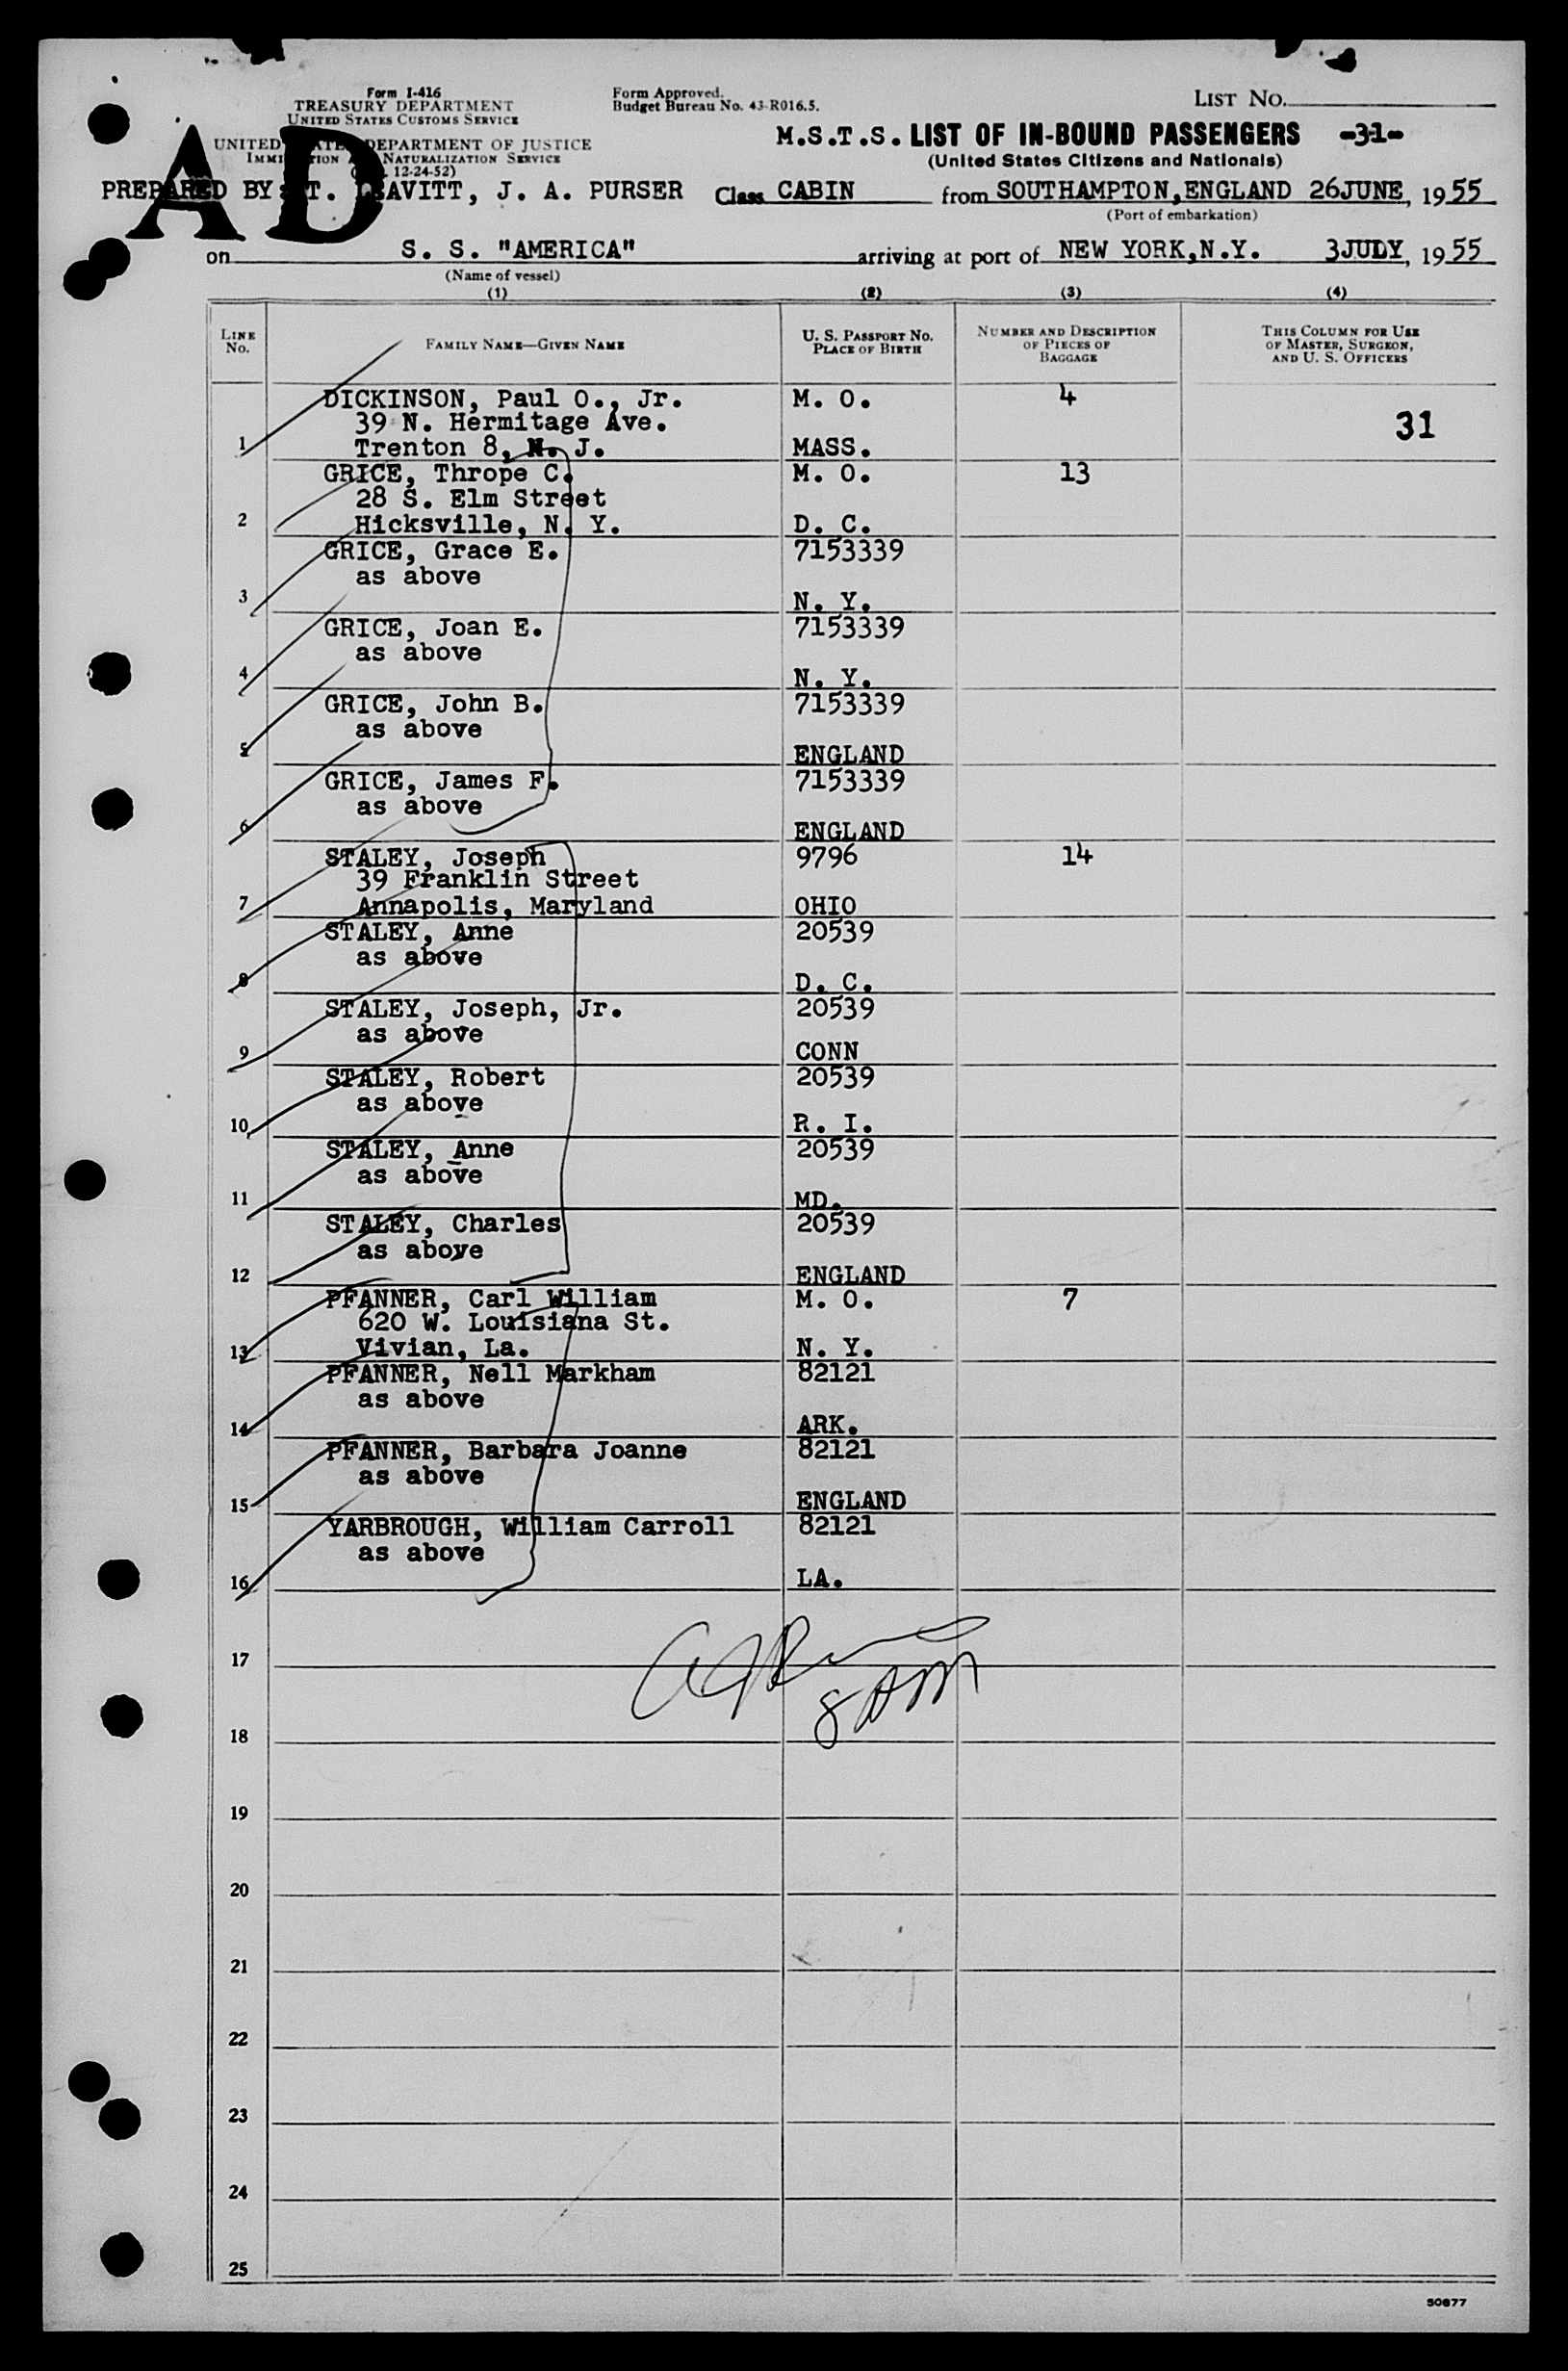 Form I-416
TREASURY DEPARTMENT
UNITED STATES CUSTOMS SERVICE
Form Approved.
Budget Bureau No. 43-R016.5.
LIST No.
UNITED DEPARTMENT OF JUSTICE
NATURALIZATION SERVICE
12-24-52)
AD
M.S.T.S. LIST OF IN-BOUND PASSENGERS -31-
(United States Citizens and Nationals)
PREPARED BY T. LEAVITT, J. A. PURSER Class CABIN from SOUTHAMPTON, ENGLAND 26JUNE, 1955
(Port of embarkation)
on S. S. "AMERICA" arriving at port of NEW YORK, N.Y. 3JULY, 1955
(Name of vessel)
(1) (2) (3) (4)
LINE No. FAMILY NAME—GIVEN NAME U. S. PASSPORT No. PLACE OF BIRTH NUMBER AND DESCRIPTION OF PIECES OF BAGGAGE THIS COLUMN FOR USE OF MASTER, SURGEON, AND U. S. OFFICERS
DICKINSON, Paul O., Jr. M. O. 4
39 N. Hermitage Ave. 31
1 Trenton 8, N. J. MASS.
GRICE, Thrope C. M. O. 13
28 S. Elm Street
2 Hicksville, N. Y. D. C.
GRICE, Grace E. 7153339
as above
3 N. Y.
GRICE, Joan E. 7153339
as above
4 N. Y.
GRICE, John B. 7153339
as above
5 ENGLAND
GRICE, James F. 7153339
as above
6 ENGLAND
STALEY, Joseph 9796 14
39 Franklin Street
7 Annapolis, Maryland OHIO
STALEY, Anne 20539
as above
8 D. C.
STALEY, Joseph, Jr. 20539
as above
9 CONN
STALEY, Robert 20539
as above
10 R. I.
STALEY, Anne 20539
as above
11 MD.
STALEY, Charles 20539
as above
12 ENGLAND
PFANNER, Carl William M. O. 7
620 W. Louisiana St.
13 Vivian, La. N. Y.
PFANNER, Nell Markham 82121
as above
14 ARK.
PFANNER, Barbara Joanne 82121
as above
15 ENGLAND
YARBROUGH, William Carroll 82121
as above
16 LA.
17
18
19
20
21
22
23
24
25
50677